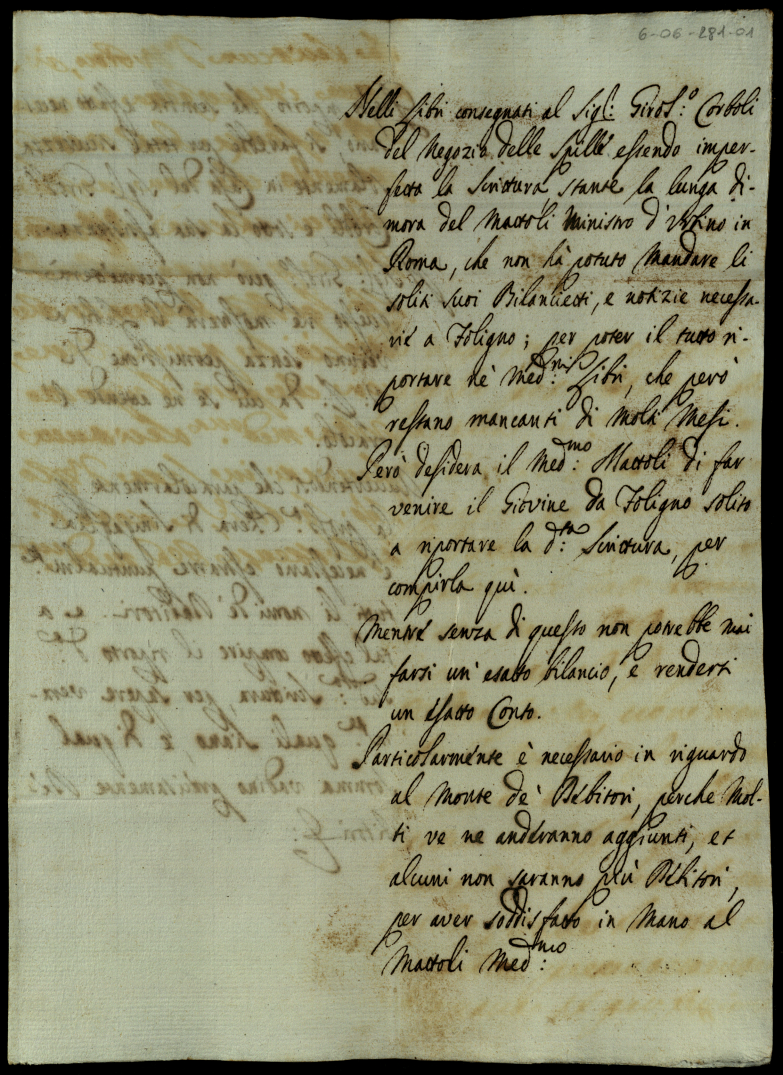 6-06-281-01
Nelli Libri consegnati al Sigl: Girol:o Corboli
del Negozio delle Spille essendo imper-
fetta la Scrittura, stante la lunga di-
mora del Mattoli Ministro d'Urbino in
Roma, che non hà potuto mandare li
soliti suoi Bilancietti, e notizie necessa-
rie a Foligno; per poter il tutto ri-
portare nè Med:mi Libri, che però
restano mancanti di molti Mesi.
Però desidera il Med:mo Mattoli di far
venire il Giovine da Foligno solito
a riportare la d:ta Scrittura, per
compirla quì.
Mentre senza di questo non potrebbe mai
farsi un' esatto bilancio, e rendersi
un esatto Conto.
Particolarmente è necessario in riguardo
al Monte de' Debitori, perche Mol-
ti ve ne anderanno aggiunti, et
alcuni non saranno più Debitori,
per aver soddisfatto in Mano al
Mattoli Med:mo